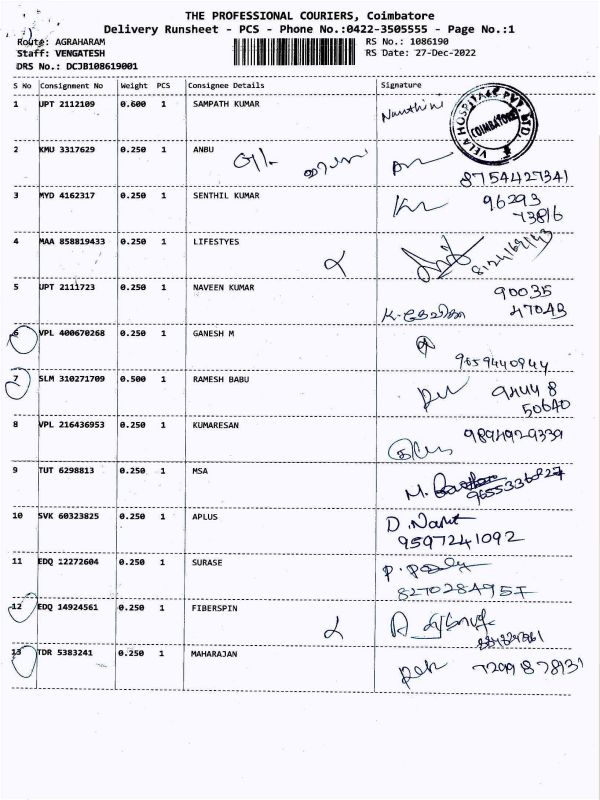 THE PROFESSIONAL COURIERS, Coimbatore
Delivery Runsheet - PCS - Phone No.:0422-3505555 - Page No.:1
Route: AGRAHARAM RS No.: 1086190
Staff: VENGATESH RS Date: 27-Dec-2022
DRS No.: DCJB108619001
S No Consignment No Weight PCS Consignee Details Signature
1 UPT 2112109 0.600 1 SAMPATH KUMAR
VELA HOSPITALS PVT. LTD. COIMBATORE
2 KMU 3317629 0.250 1 ANBU
8754427341
3 MYD 4162317 0.250 1 SENTHIL KUMAR 96293
73816
4 MAA 858819433 0.250 1 LIFESTYES
5 UPT 2111723 0.250 1 NAVEEN KUMAR 90035
47043
6 VPL 400670268 0.250 1 GANESH M
9659440944
7 SLM 310271709 0.500 1 RAMESH BABU 94448
50640
8 VPL 216436953 0.250 1 KUMARESAN 9894929339
9 TUT 6298813 0.250 1 MSA
10 SVK 60323825 0.250 1 APLUS
9597241092
11 EDQ 12272604 0.250 1 SURASE
8270284957
12 EDQ 14924561 0.250 1 FIBERSPIN
13 TDR 5383241 0.250 1 MAHARAJAN